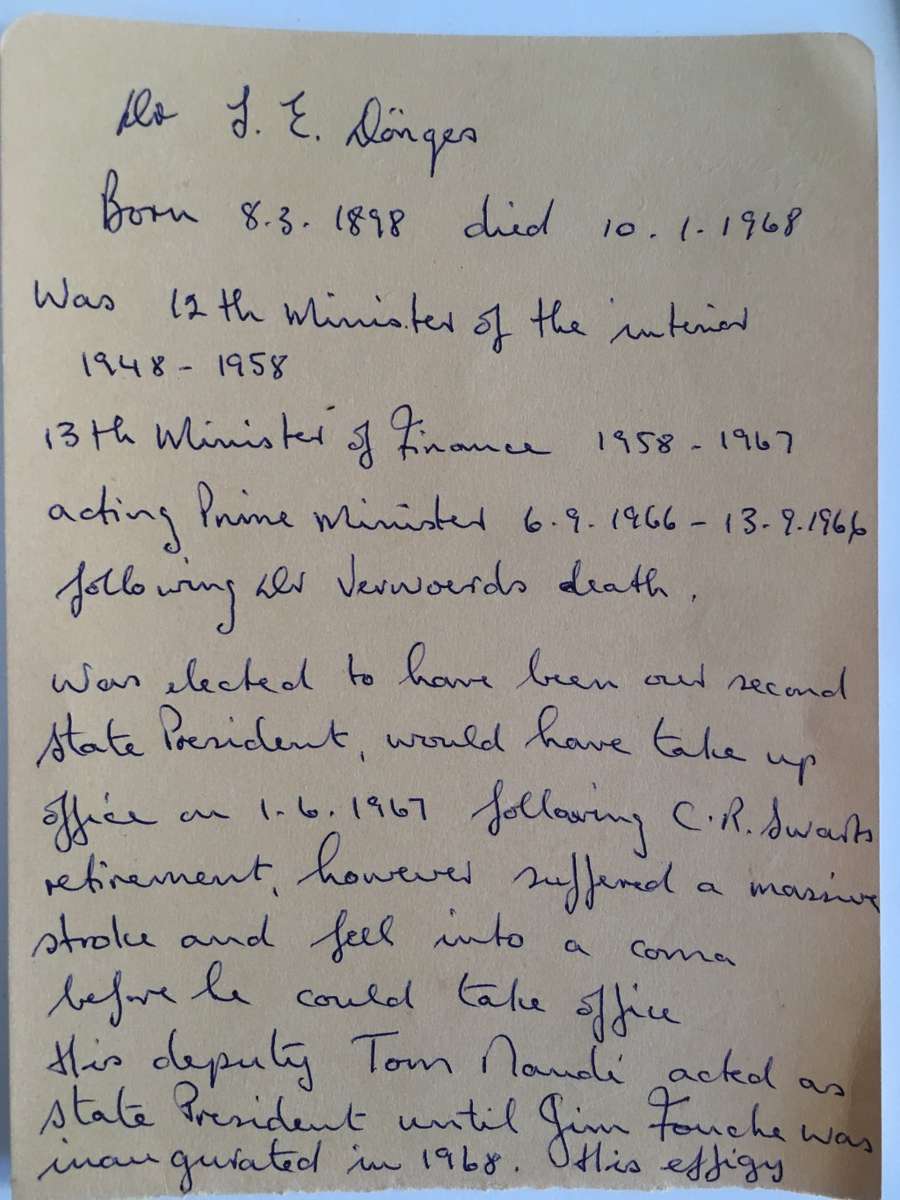 Dr T. E. Dönges
Born 8.3. 1898 died 10.1.1968
Was 12th Minister of the interior
1948 - 1958
13th Minister of Finance 1958 - 1967
acting Prime Minister 6.9.1966 - 13.9.1966
following Dr Verwoerds death.
Was elected to have been our second
State President, would have take up
office on 1.6.1967 following C.R. Swarts
retirement, however suffered a massive
stroke and feel into a coma
before he could take office
His deputy Tom Naudé acted as
State President until Jim Fouche was
inaugurated in 1968. His effigy